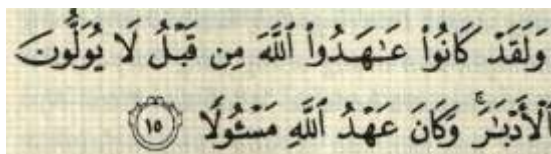 وَلَقَدْ كَانُوا۟ عَـٰهَدُوا۟ ٱللَّهَ مِن قَبْلُ لَا يُوَلُّونَ
ٱلْأَدْبَـٰرَ ۚ وَكَانَ عَهْدُ ٱللَّهِ مَسْـُٔولًا ١٥